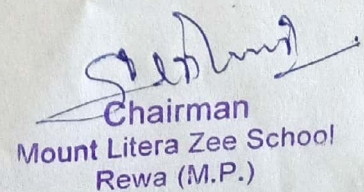 Chairman
Mount Litera Zee School
Rewa (M.P.)